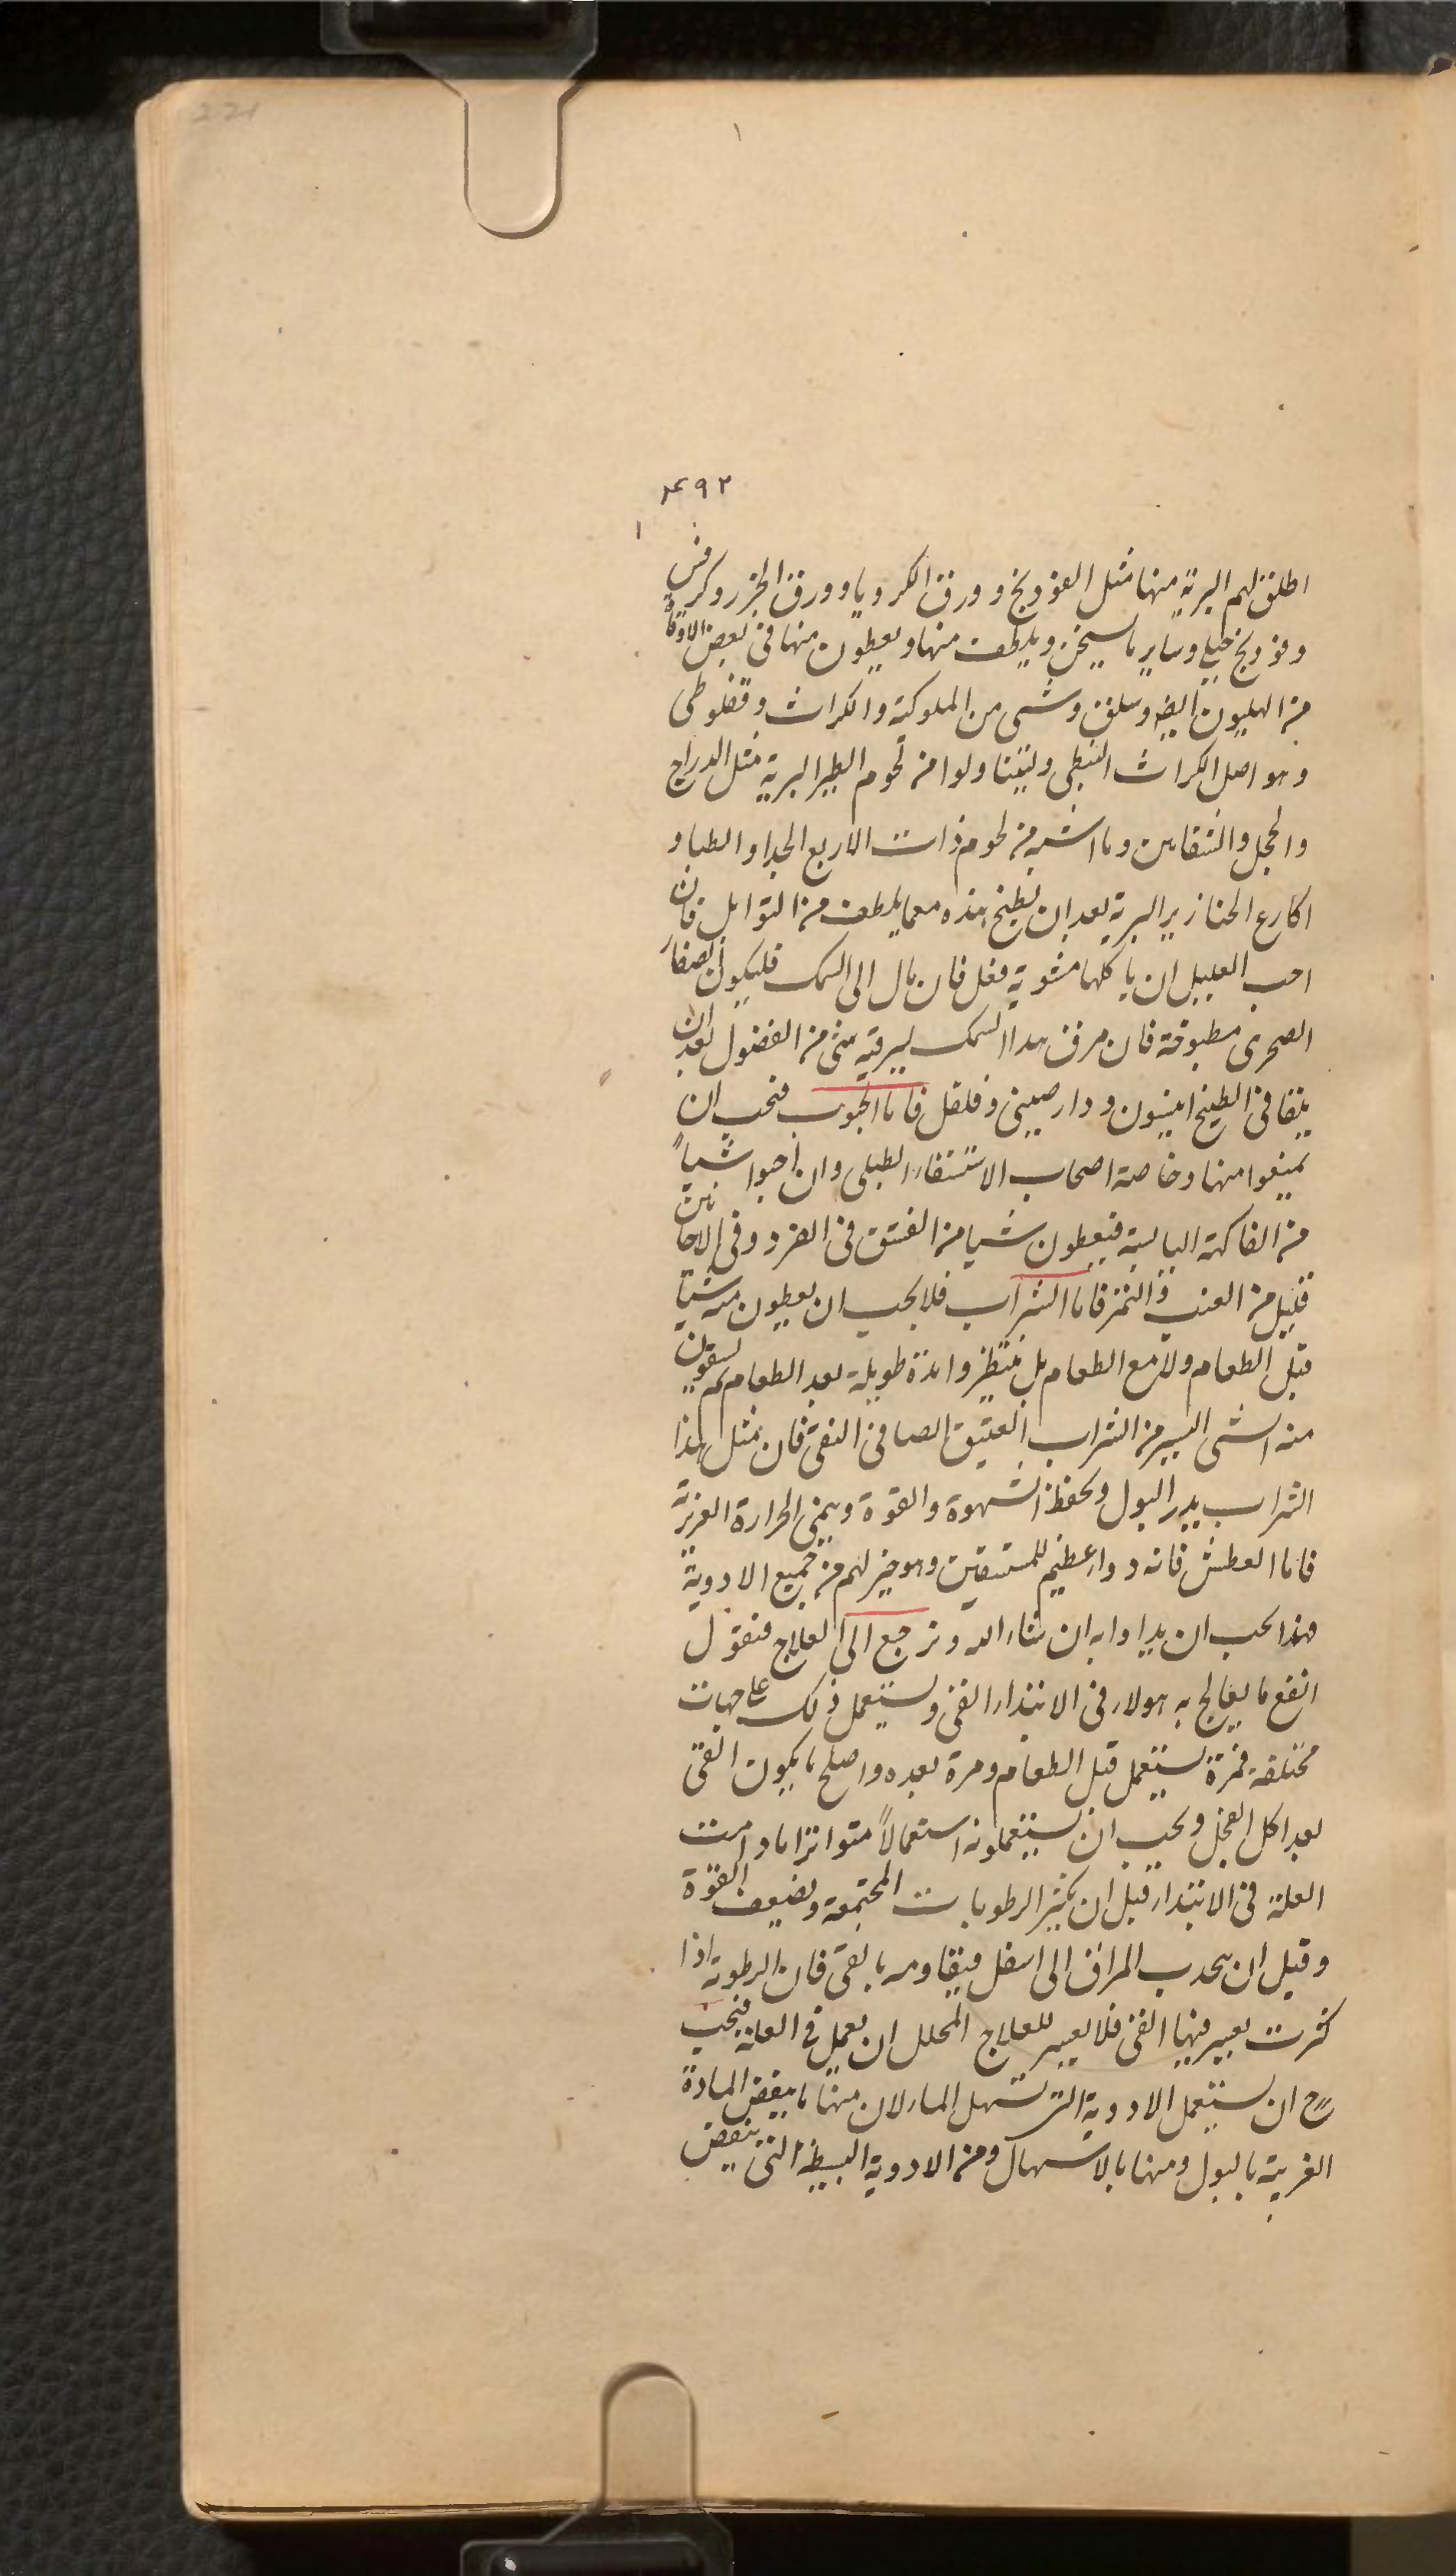 221
۴۹۲
اطلق لهم البرية منها مثل الفودنج وورق الكرويا وورق الجزر وكرفس
وفودنج جبلي وساير ما يسخن ويلطف منها ويعطون منها في بعض الاوقات
من الهليون ايضا وسلق وشى من الملوكية والكراث وقفلوطى
وهو اصل الكراث النبطى وليتناولوا من لحوم الطير البرية مثل الدراج
والحجل والشقانين وما اشبه من لحوم ذوات الاربع الجدا والظبا و
اكارع الخنازير البرية بعد ان يطبخ هذه معما يلطف من التوابل فان
احب العليل ان ياكلها مشوية فعل فان مال الى السمك فليكون الصغار
الصخرى مطبوخة فان مرق هذا السمك ليرقيه شى من الفضول بعد ان
يلقا في الطبخ انيسون ودار صينى وفلفل فاما الحبوب فيجب ان
يمنعوا منها وخاصة اصحاب الاستسقاء الطبلى وان احبوا شيأً
من الفاكهة اليابسة فيعطون شيا من الفستق في الفرد وفي الاحانين
قليل من العنب والتمر فاما الشراب فلا يجب ان يعطون منه شيا
قبل الطعام ولا مع الطعام بل ينتظروا مدة طويلة بعد الطعام ثم يسقون
منه الشى اليسير من الشراب العتيق الصافي النقى فان مثل هذا
الشراب يدر البول ويحفظ الشهوة والقوة وينمى الحرارة الغريزية
فاما العطش فانه دواء عظيم للمستسقين وهو خير لهم من جميع الادوية
فهذا يجب ان يداوا به ان شاء الله ونرجع الى العلاج فنقول
انفع ما يعالج به هولاء في الابتداء القى ويستعمل ذلك على جهات
مختلفة فمرة يستعمل قبل الطعام ومرة بعده واصلح ما يكون القى
بعد اكل الفجل ويجب ان يستعملونه استعمالاً متواترا مادامت
العلة في الابتداء قبل ان يكثر الرطوبات المجتمعة ويضعف القوة
وقبل ان يحدب المراق الى اسفل فيقاومه بالقى فان الرطوبة اذا
كثرت يعسر فيها القى فلا يعسر للعلاج المحلل ان يعمل في العلة فيجب
ح ان يستعمل الادوية التى تسهل الماء لان منها ما ينفض المادة
الغريبة بالبول ومنها بالاسهال ومن الادوية البسيطة التى ينفض